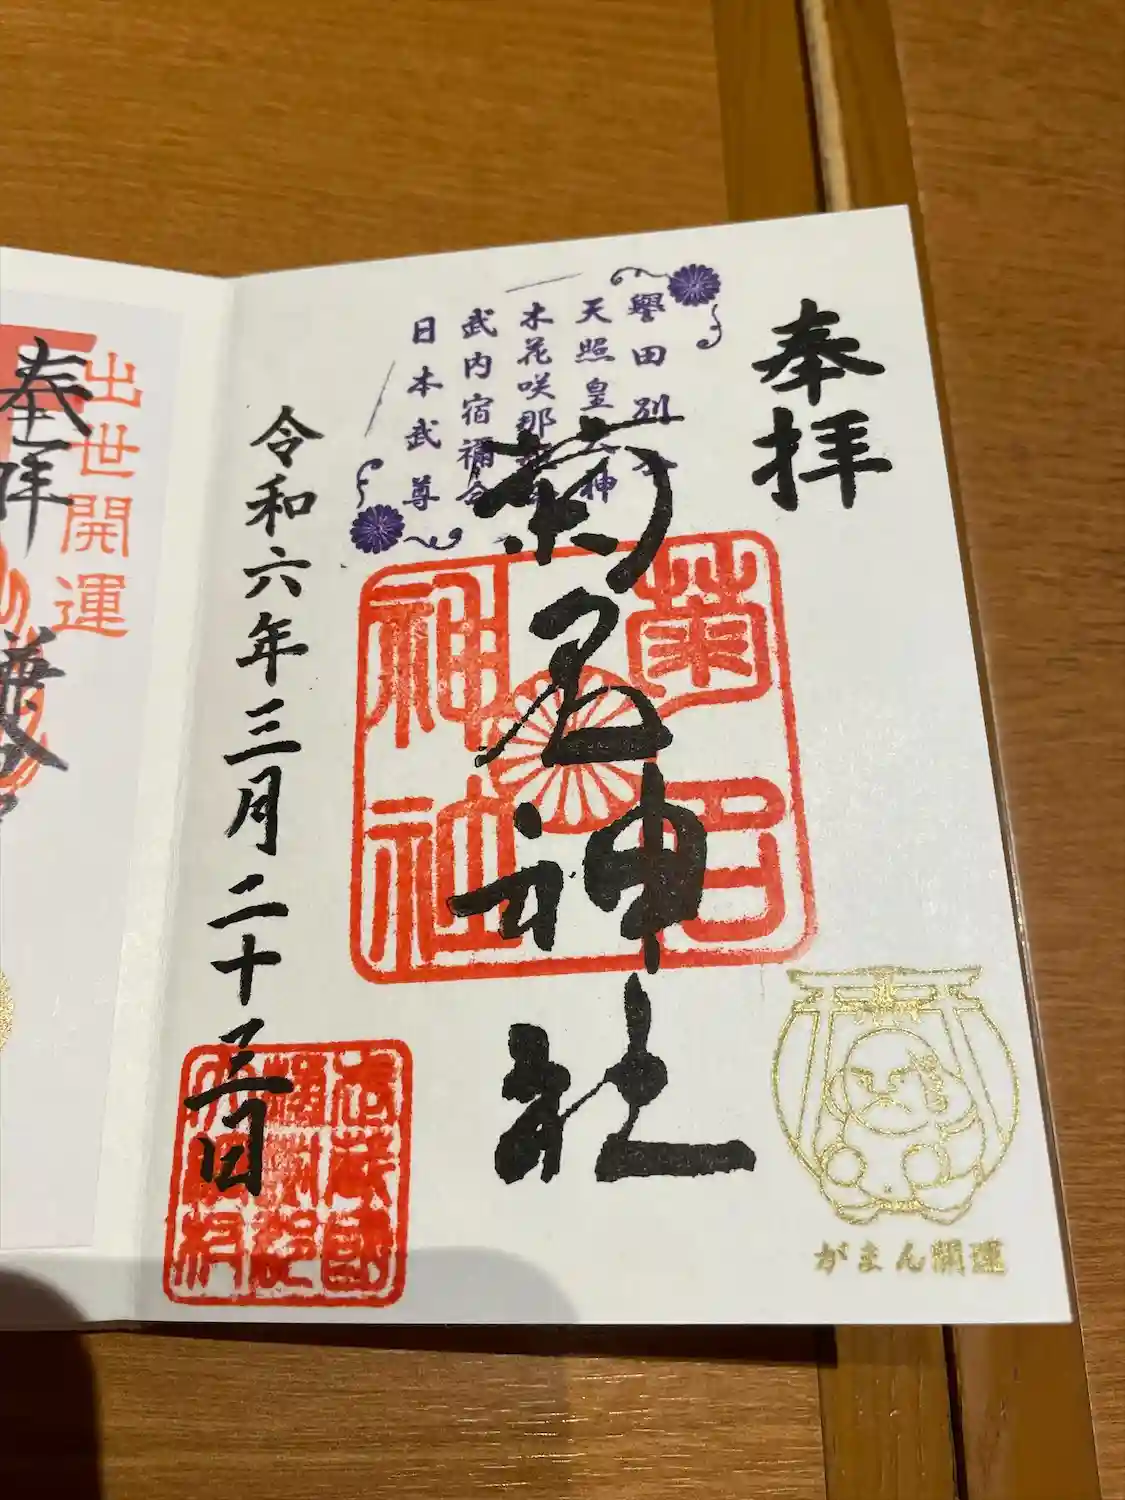 奉拝
譽田別命
天照皇大神
木花咲那姫命
武内宿禰命
日本武尊
菊名神社
菊名
神社
令和六年三月二十三日
武蔵國
がまん開運
出世開運
奉拝